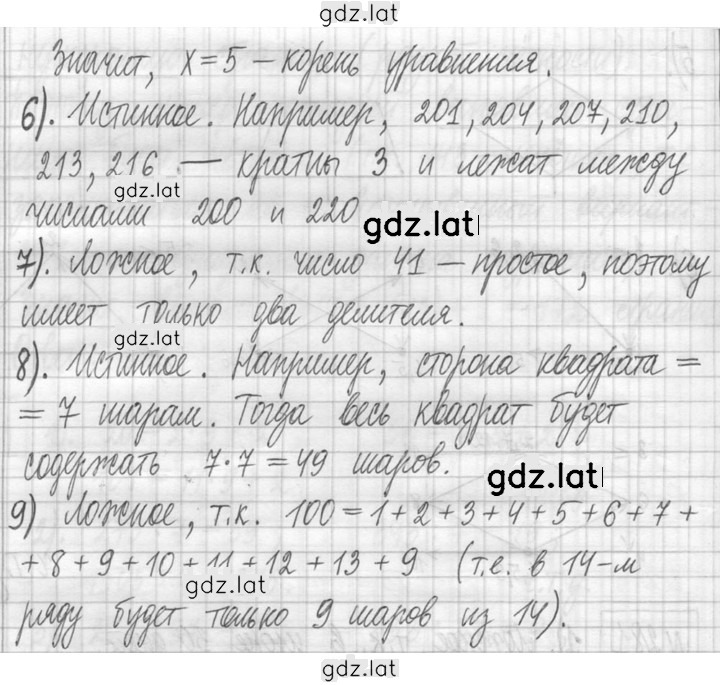 gdz.lat
Значит, x=5 – корень уравнения.
6). Истинное. Например, 201, 204, 207, 210,
213, 216 — кратны 3 и лежат между
gdz.lat
числами 200 и 220
gdz.lat
7). Ложное, т.к. число 41 – простое, поэтому
имеет только два делителя.
gdz.lat
8). Истинное. Например, сторона квадрата =
= 7 шарам. Тогда весь квадрат будет
содержать 7·7=49 шаров.
gdz.lat
9) Ложное, т.к. 100=1+2+3+4+5+6+7+
+8+9+10+11+12+13+9 (т.е. в 14-м
gdz.lat
ряду будет только 9 шаров из 14).
gdz.lat